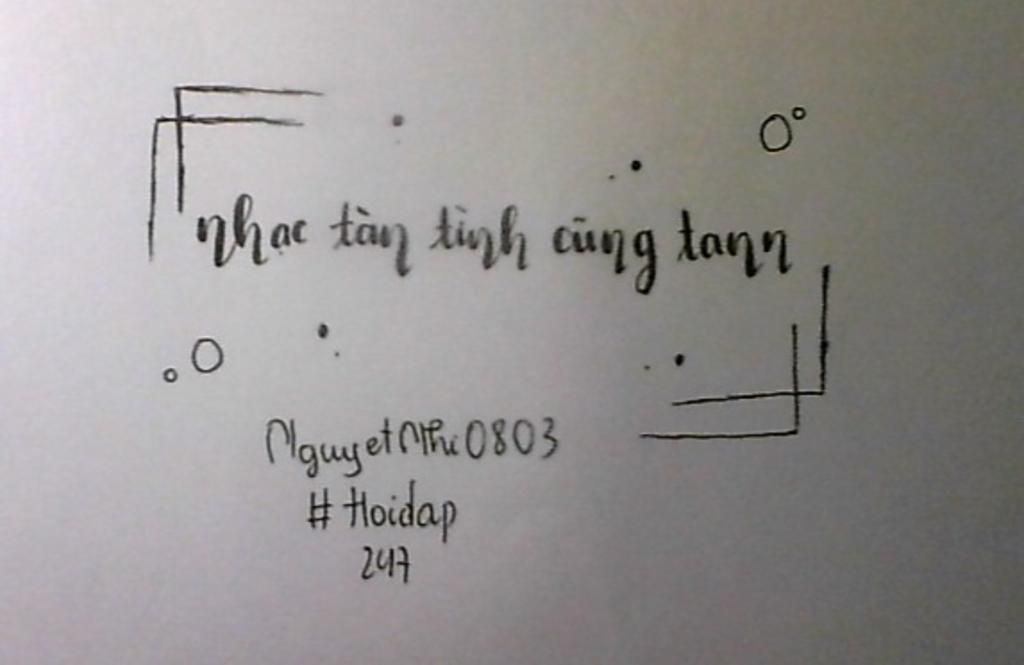 nhạc tàn tình cũng tann
NguyetNhi0803
#Hoidap
247